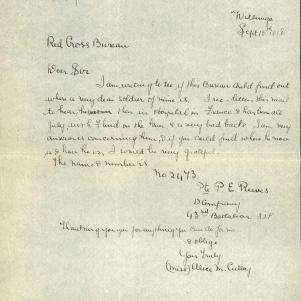 "Willunga
Sept 16th 1918
Red Cross Bureau
Dear Sir
I am writing to see if this Bureau could find out
where a very dear soldier of mine is. I rec. letter this mail
to hear he was in Hospital in France & has been all
July, with in the & a very bad back. I am very
anxious concerning him, & if you could find where he now
is & how he is, I would be very grateful
The name & number is
No 2473
Pte P. E. Reeves
D Company
43rd Battalion A.I.F
Thanking you for anything you can do for me
& oblige
Yours Truly
(Miss) Alice M.